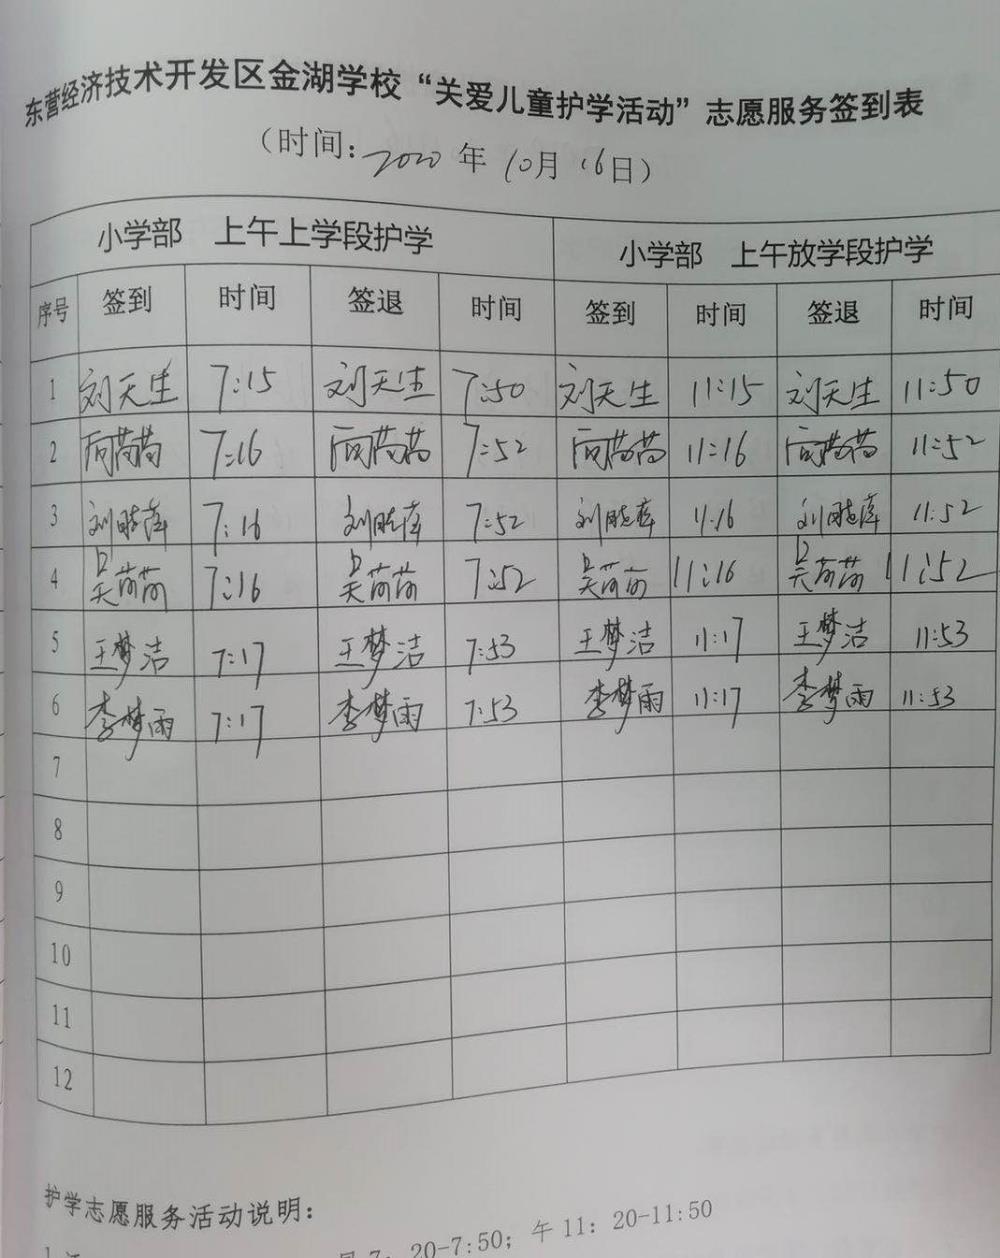 东营经济技术开发区金湖学校“关爱儿童护学活动”志愿服务签到表
(时间: 2020 年 10月 16日)
小学部 上午上学段护学 小学部 上午放学段护学
序号 签到 时间 签退 时间 签到 时间 签退 时间
1 刘天生 7:15 刘天生 7:50 刘天生 11:15 刘天生 11:50
2 7:16 7:52 11:16 11:52
3 刘晓萍 7:16 刘晓萍 7:52 刘晓萍 11:16 刘晓萍 11:52
4 吴苘苘 7:16 吴苘苘 7:52 吴苘苘 11:16 吴苘苘 11:52
5 王梦洁 7:17 王梦洁 7:53 王梦洁 11:17 王梦洁 11:53
6 李梦雨 7:17 李梦雨 7:53 李梦雨 11:17 李梦雨 11:53
7
8
9
10
11
12
护学志愿服务活动说明:
7: 20-7:50; 午 11: 20-11:50